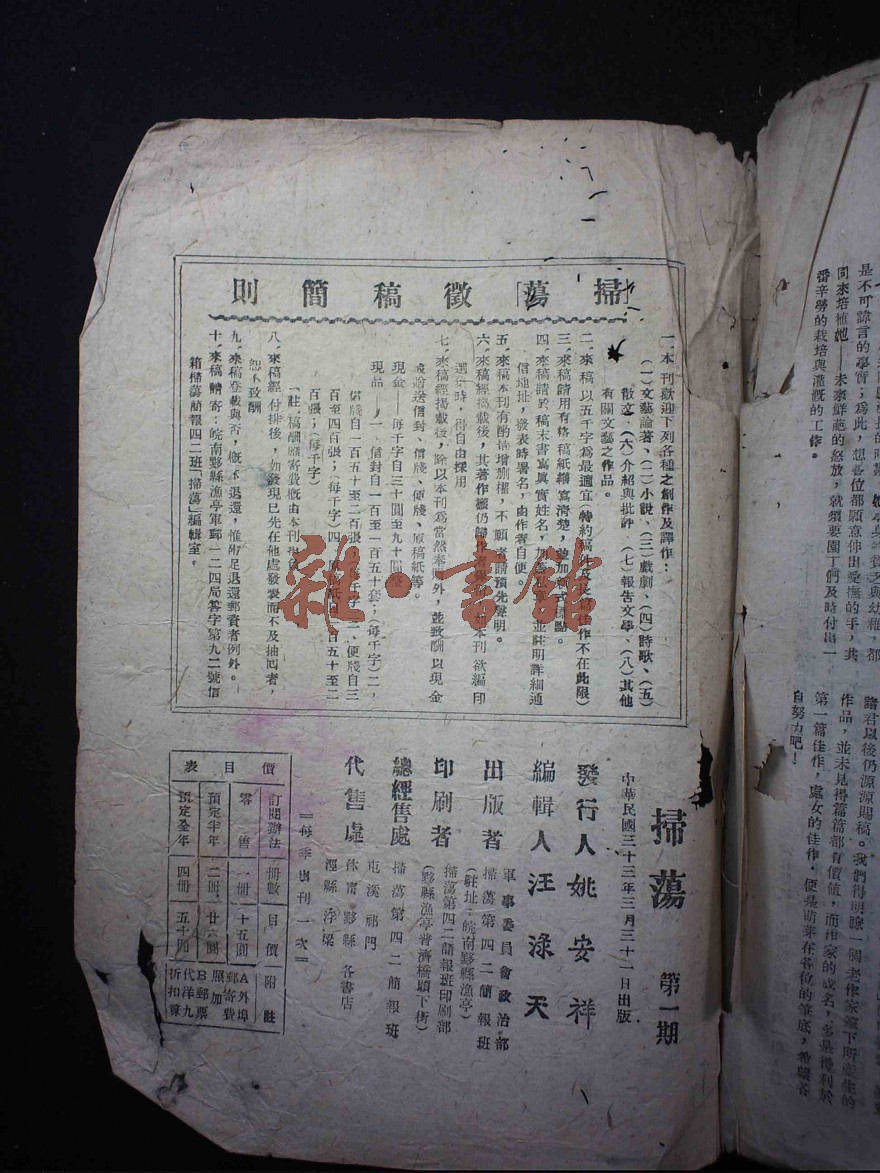 是不可諱言的事實；為此，想各位都願意伸出愛撫的手，共
同來培植牠——未來鮮葩的怒放，就須要園丁們及時付出一
番辛勞的栽培與灌溉的工作。
諸君以後仍源源賜稿。我們得明瞭一個老作家筆下所產生的
作品，並未見得篇篇都有價值，而作家的成名，多是得利於
第一篇佳作，處女的佳作，便是萌芽在各位的筆底，希望各
自努力吧！
「掃蕩」徵稿簡則
一、本刊歡迎下列各種之創作及譯作：
（一）文藝論著、（二）小說、（三）戲劇、（四）詩歌、（五）
散文、（六）介紹與批評、（七）報告文學、（八）其他
有關文藝之作品。
二、來稿以五千字為最適宜（特約稿件及長篇佳作不在此限）
三、來稿請用有格稿紙繕寫清楚，並加新式標點。
四、來稿請於稿末書寫眞實姓名，加蓋私章，並註明詳細通
信地址，發表時署名，由作者自便。
五、來稿本刊有酌請增删權，不願者請預先聲明。
六、來稿經揭載後，其著作權仍歸作者 本刊欲編印
選集時，得自由採用
七、來稿經揭載後，除以本刊為當然奉 外，並致酬以現金
或贈送信封、信牋、便牋、原稿紙等。
現金——每千字自三十圓至九十圓
現品——一、信封自一百至一百五十套；（每千字）二、
信牋自一百五十至二百張；（每千字）三、便牋自三
百至四百張；（每千字）四、原稿紙自 百五十至二
百張；（每千字）
（註：稿酬郵寄費概由本刊
八、來稿經付排後，如發現已先在他處發表而不及抽回者，
恕不致酬
九、來稿登載與否，概不退還，惟附足退還郵資者例外。
十、來稿請寄：皖南黟縣漁亭軍郵一二四局答字第九二號信
箱掃蕩簡報四二班「掃蕩」編輯室。
掃蕩 第一期
中華民國三十三年三月三十一日出版
發行人 姚安祥
編輯人 汪淥天
出版者 軍事委員會政治部
掃蕩第四二簡報班
（駐址：皖南黟縣漁亭）
印刷者 掃蕩第四二簡報班印刷部
（黟縣漁亭普濟橋頭下街）
總經售處 掃蕩第四二簡報班
代售處 屯溪 祁門
休甯 黟縣 各書店
涇縣 浮梁
＝每季出刊一次＝
價目表
訂閱辦法 冊數 目價 附註
零售 一冊 十五圓
預定半年 二冊 廿六圓
預定全年 四冊 五十圓
A外埠
郵寄費
照加
B郵票
代洋九
折扣算
雜·書館